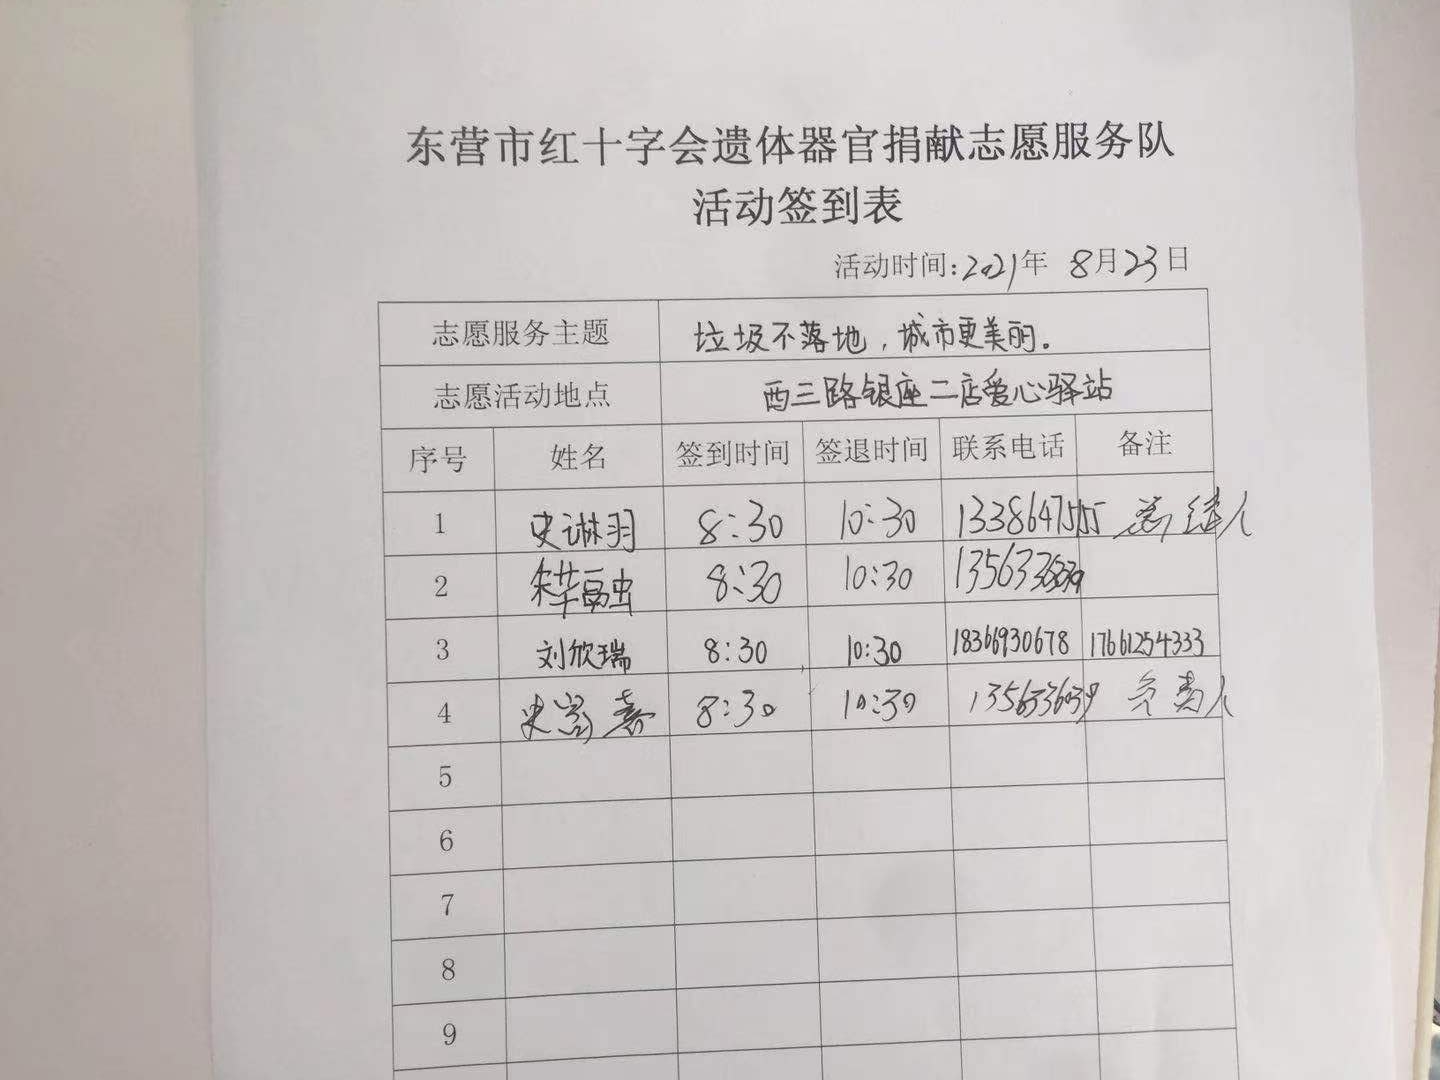 东营市红十字会遗体器官捐献志愿服务队
活动签到表
活动时间:2021年 8月23日
志愿服务主题 垃圾不落地,城市更美丽。
志愿活动地点 西三路银座二店爱心驿站
序号 姓名 签到时间 签退时间 联系电话 备注
1 史琳羽 8:30 10:30
2 8:30 10:30
3 刘欣瑞 8:30 10:30 18366930678 17661254333
4 史 8:30 10:30 负责人
5
6
7
8
9